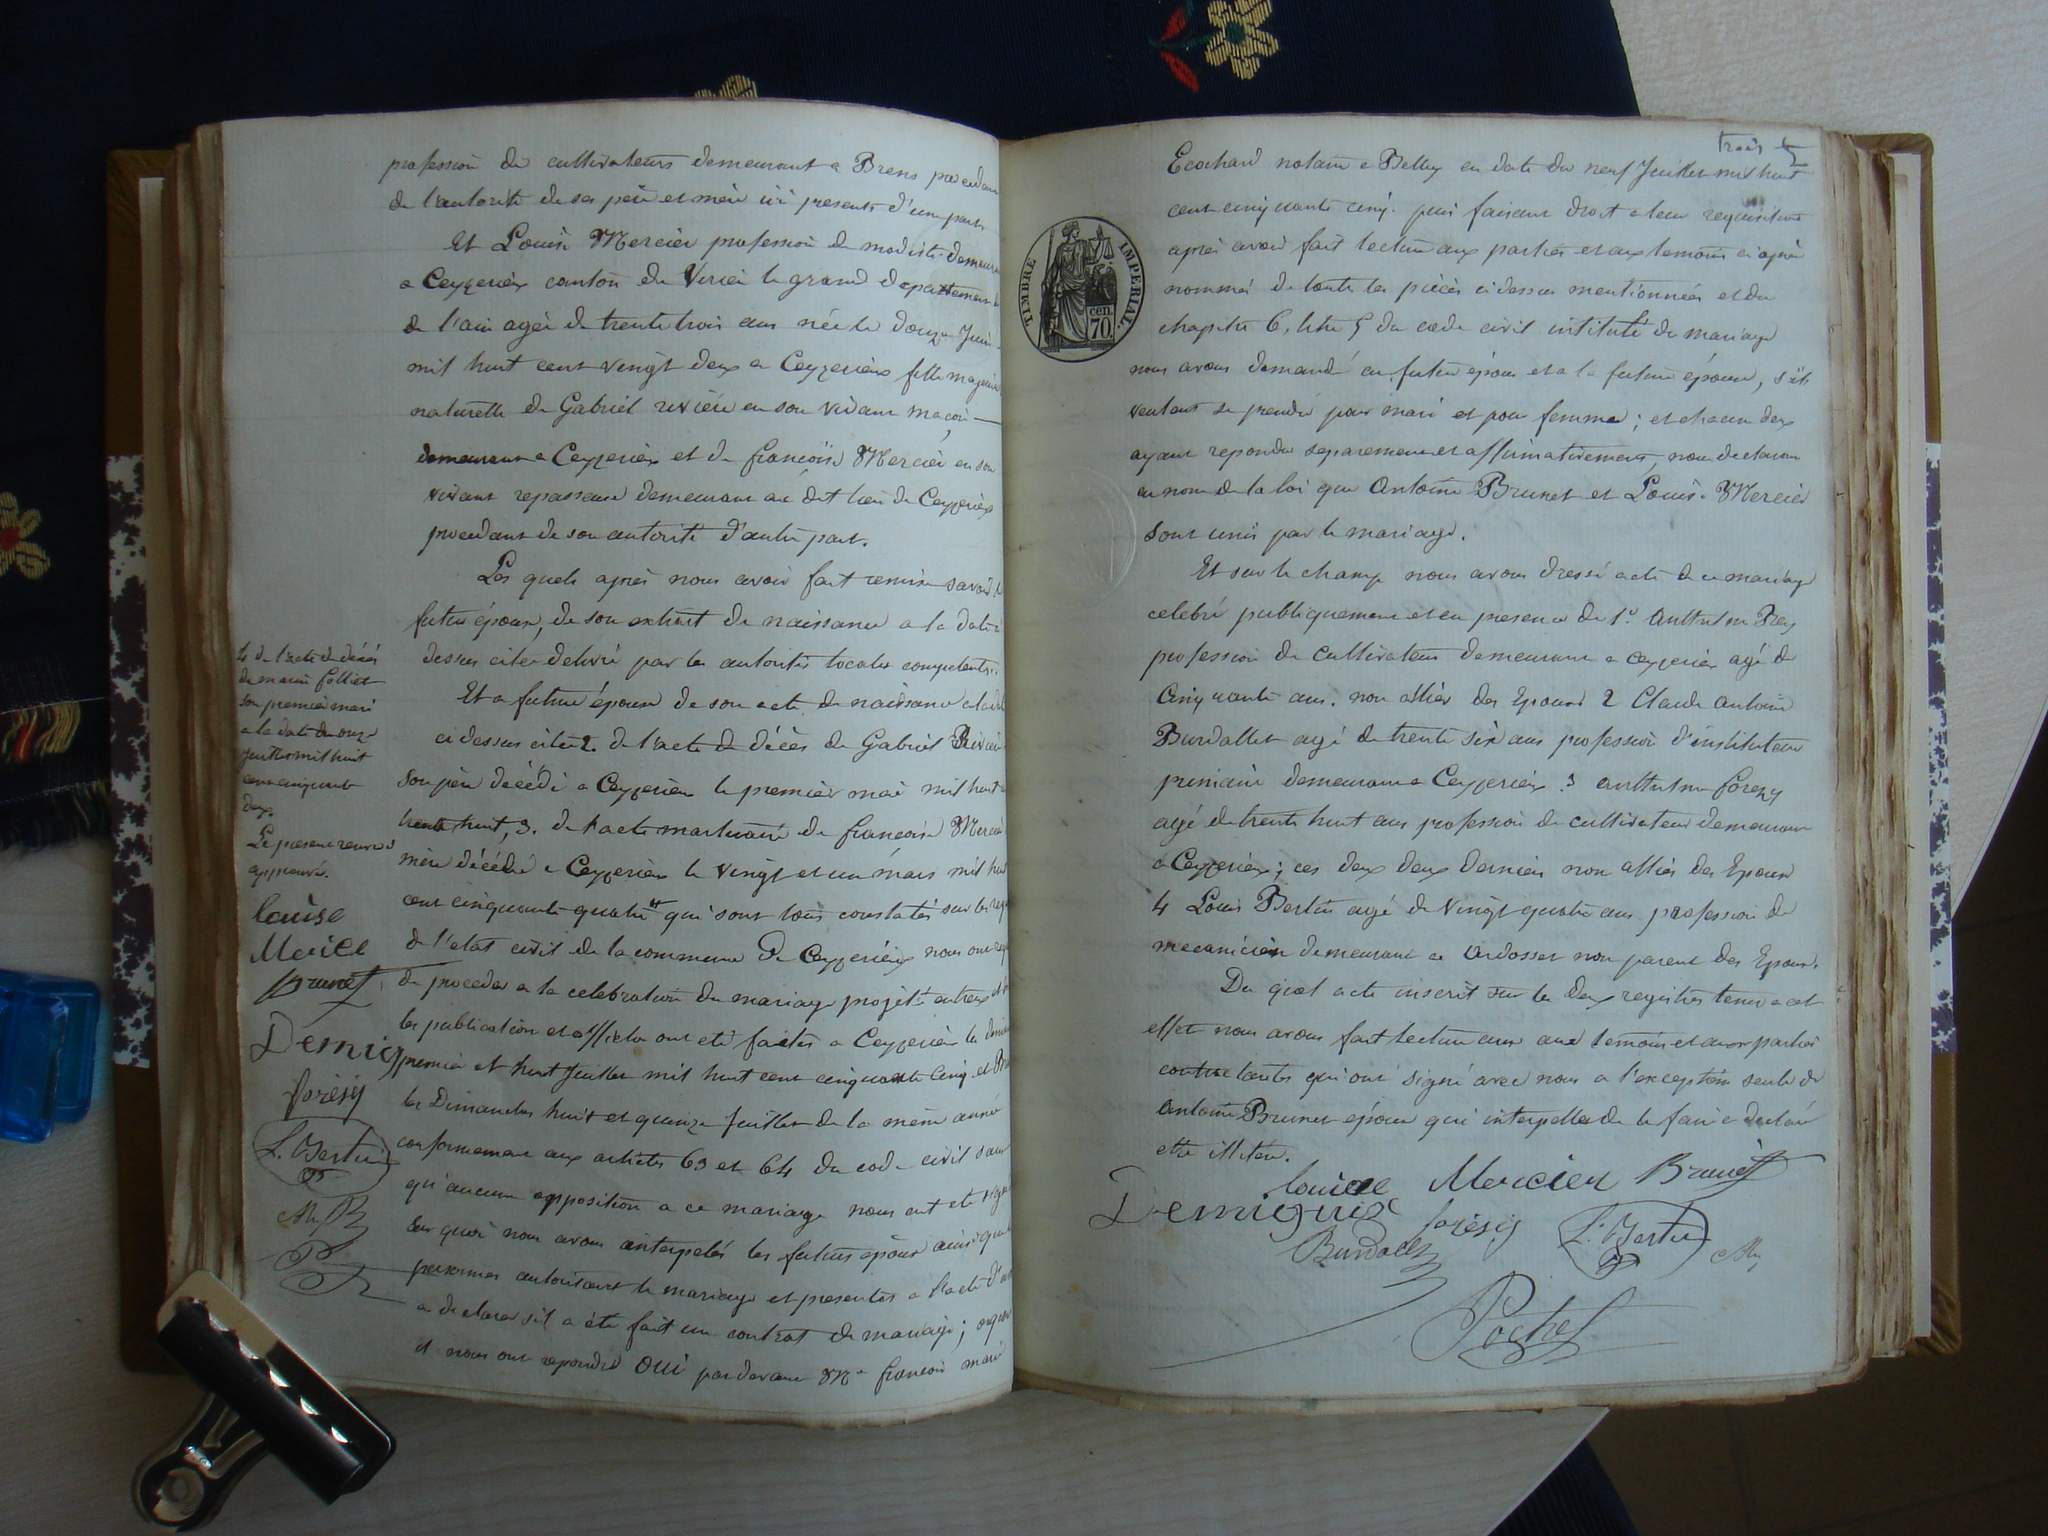 profession de cultivateurs demeurant a Brens procedant
de l'autorité de ses père et mère ici presents d'une part
Et Louise Mercier profession de modiste demeurant
a Ceyzerieux canton de Virieu le grand departement
de l'ain agée de trente trois ans née le douze Juin
mil huit cent vingt deux a Ceyzerieux fille majeure
naturelle de Gabriel rivière en son vivant maçon
demeurant a Ceyzerieux et de françoise Mercier en son
vivant repasseuse demeurant au dit lieu de Ceyzerieux
procedant de son autorité d'autre part.
Les quels après nous avoir fait remise savoir le
futur époux, de son extrait de naissance a la date
dessus citée delivré par les autorités locales competentes.
Et a future épouse de son acte de naissance a la date
ci dessus citée 2. de l'acte de décès de Gabriel Rivière
son père décédé a Ceyzerieux le premier mai mil huit
trente huit, 3. de l'acte mortuaire de françoise Mercier
mère décédée a Ceyzerieux le vingt et un mars mil huit
cent cinquante quatre qui sont tous constatés sur les
de l'etat civil de la commune de Ceyzerieux nous ont
de proceder a la celebration du mariage projeté entreux et
les publication et affiche ont eté faites a Ceyzerieux les
premier et huit Juillet mil huit cent cinquante cinq et
les Dimanches huit et quinze Juillet de la même année
conformement aux articles 63 et 64 du code civil sans
qu'aucune opposition a ce mariage nous ont eté
Sur quoi nous avons interpelés les futurs époux ainsi que
personnes autorisant le mariage et presentes a l'acte
a declarer s'il a été fait un contrat de mariage;
et nous ont repondu OUI pardevant Me françois marie
4 de l'acte de décés
de marin folliet
son premier mari
a la date du onze
Juillet mil huit
cent cinquante
deux
Le present renvoi
approuvé.
louise
Brunet
Demig
forésy
L. Bertin
trois
Ecochard notaire a Belley en date du neuf Juillet mil huit
cent cinquante cinq. puis faisant droit a leur requisition
après avoir fait lecture aux parties et aux temoins ci après
nommés de toutes les pièces ci dessus mentionnées et du
chapitre 6, titre 5 du code civil intitulé du mariage
nous avons demandé au futur époux et a la future épouse, s'ils
veulent se prendre pour mari et pour femme; et chacun deux
ayant repondu separement et affirmativement, nous declarons
au nom de la loi que Antoine Brunet et Louise Mercier
sont unis par le mariage.
TIMBRE IMPERIAL.
cen.
70
Et sur le champ nous avons dressé acte de ce mariage
celebré publiquement et en presence de 1° Anthelme Frey
profession de cultivateur demeurant a Ceyzerieux agé de
Cinquante ans. non alliés des Epoux 2 Claude Antoine
Burdallet agé de trente six ans profession d'instituteur
primaire demeurant a Ceyzerieux. 3 anthelme foresy
agé de trente huit ans profession de cultivateur demeurant
a Ceyzerieux; ces deux deux derniers non alliés des Epoux
4 Louis Bertin agé de vingt quatre ans profession de
mecanicien demeurant a non parent des Epoux.
Du quel acte inscrit sur les deux registres tenus a cet
effet nous avons fait lecture aux aux temoins et aux parties
contractantes qui ont signé avec nous a l'exception seule de
Antoine Brunet époux qui interpellé de le faire a declaré
etre illiteré.
louise Mercier Brunet
Demigrieux forésy L. Bertin
Burdallet
Pochet